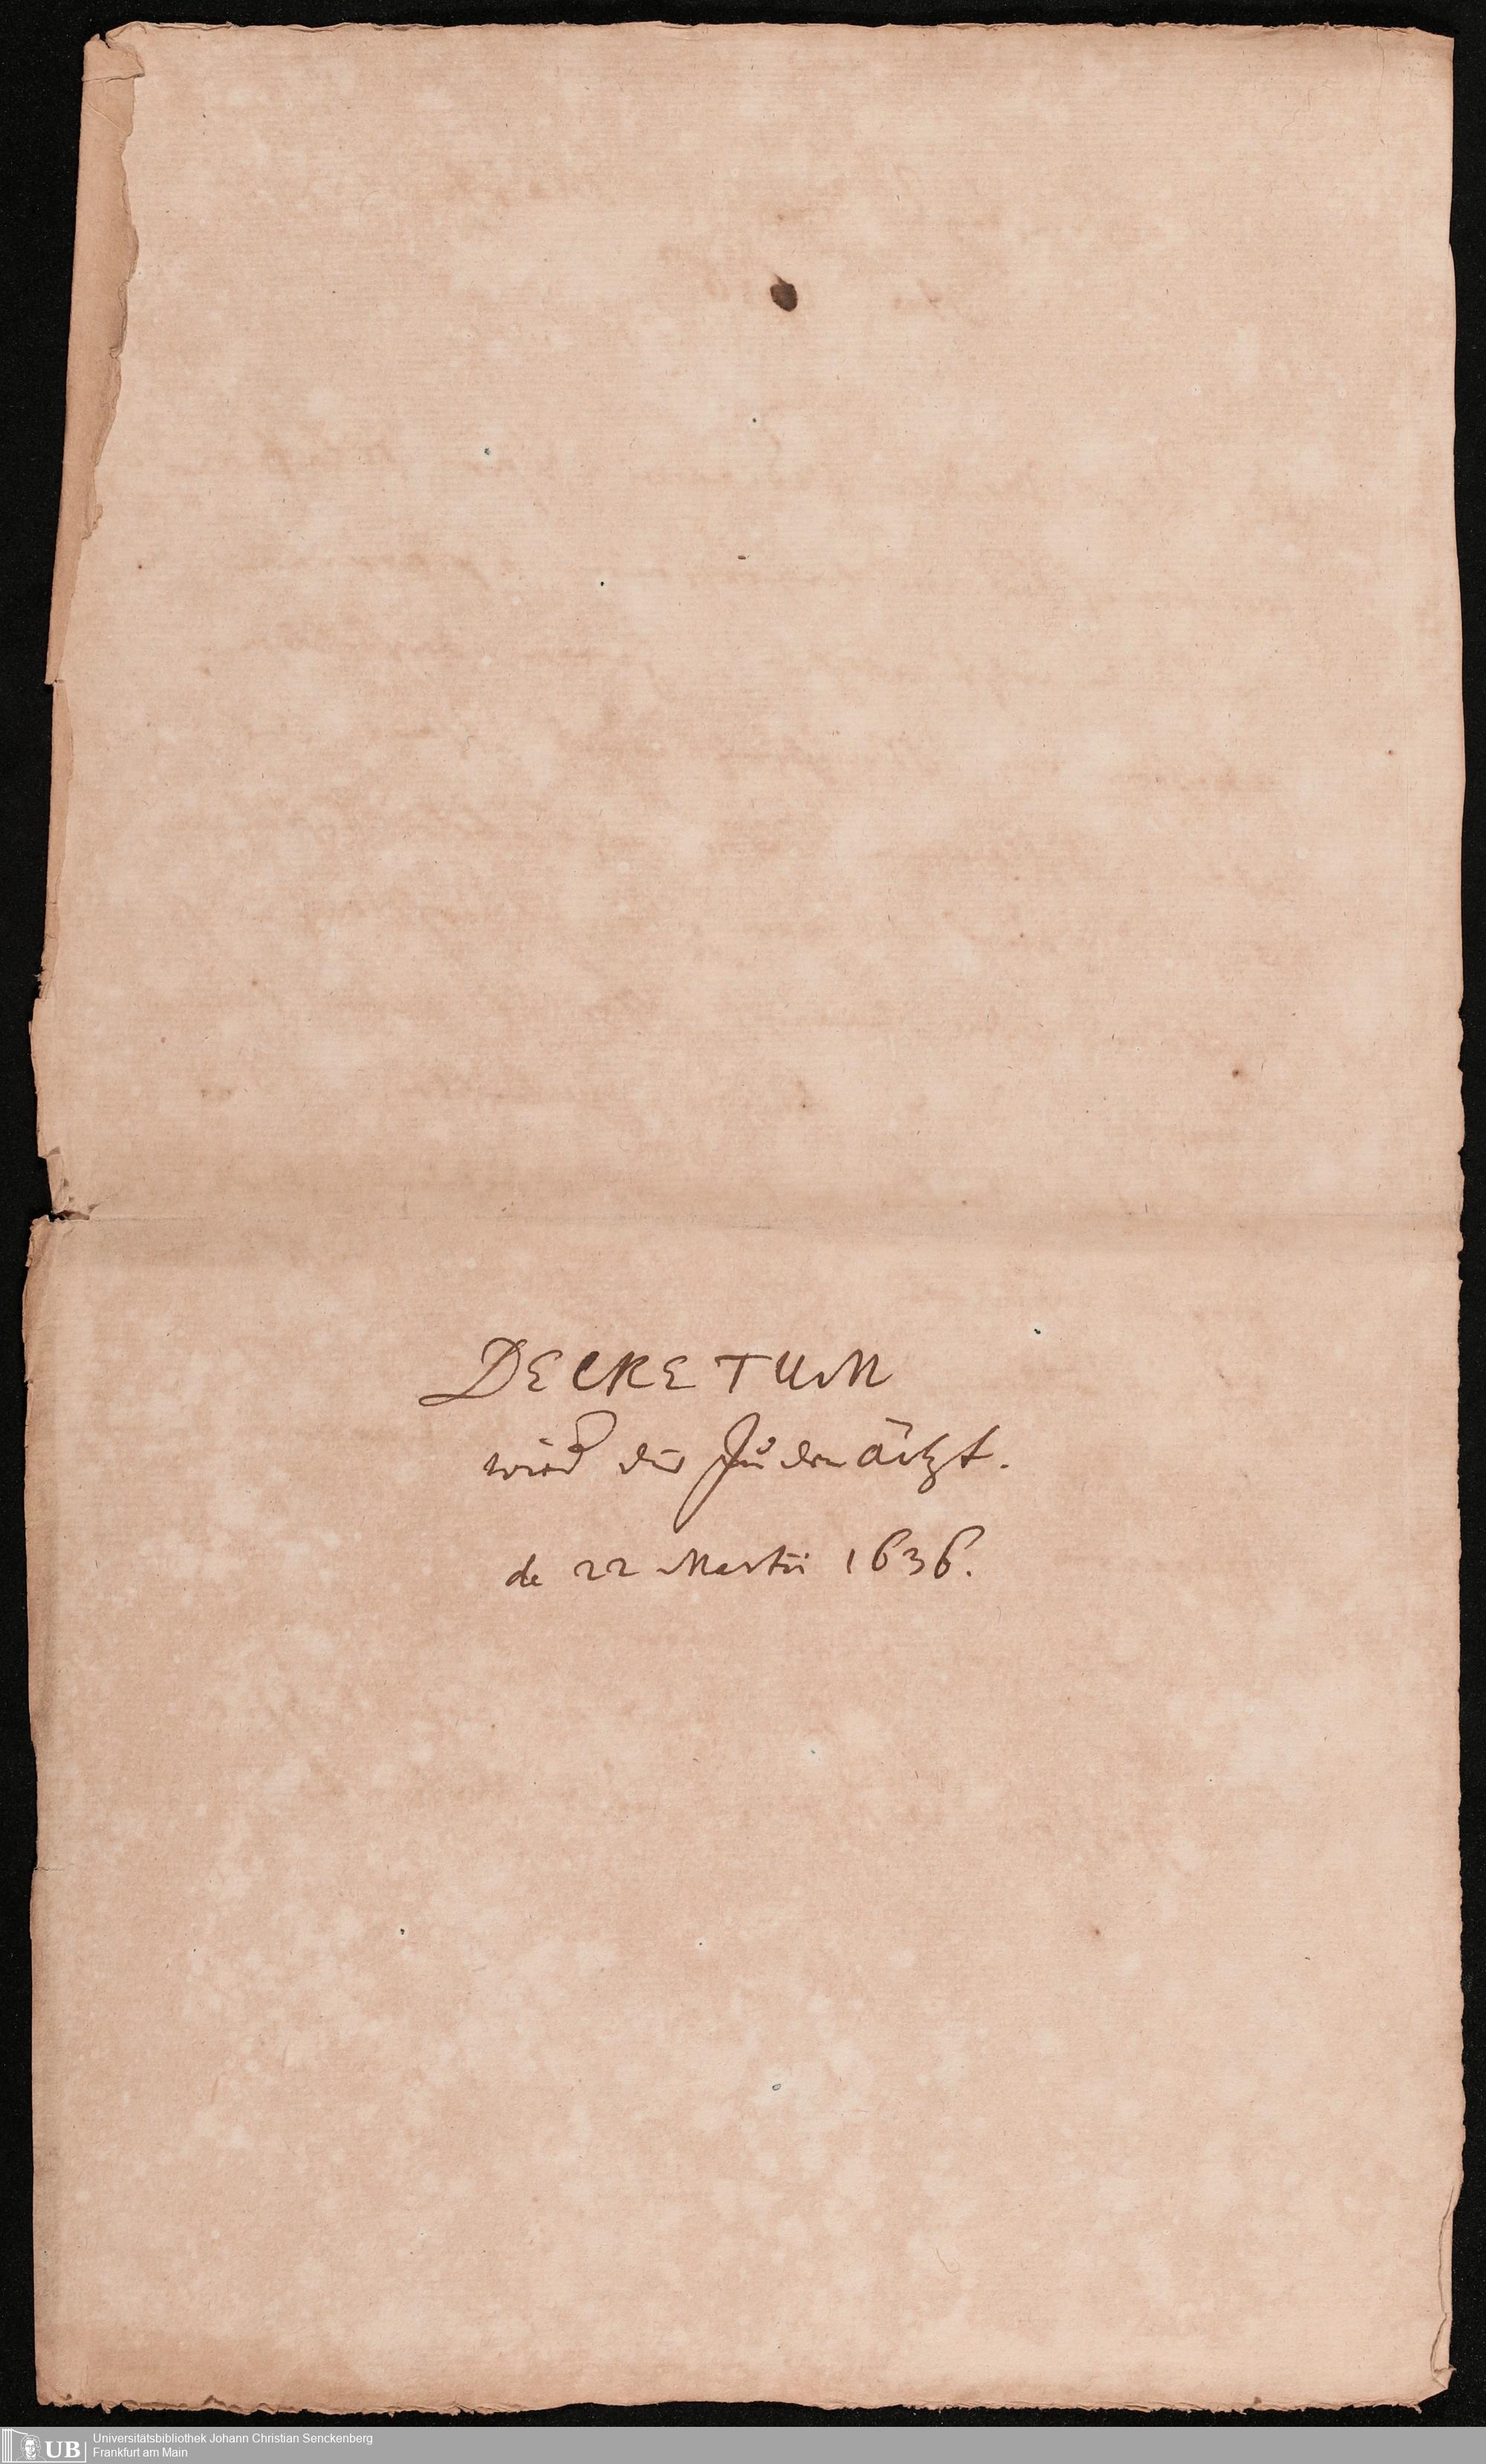 DECRETUM
wid die Juden ärtzt.
de 22 Martii 1636.
UB
Universitätsbibliothek Johann Christian Senckenberg
Frankfurt am Main